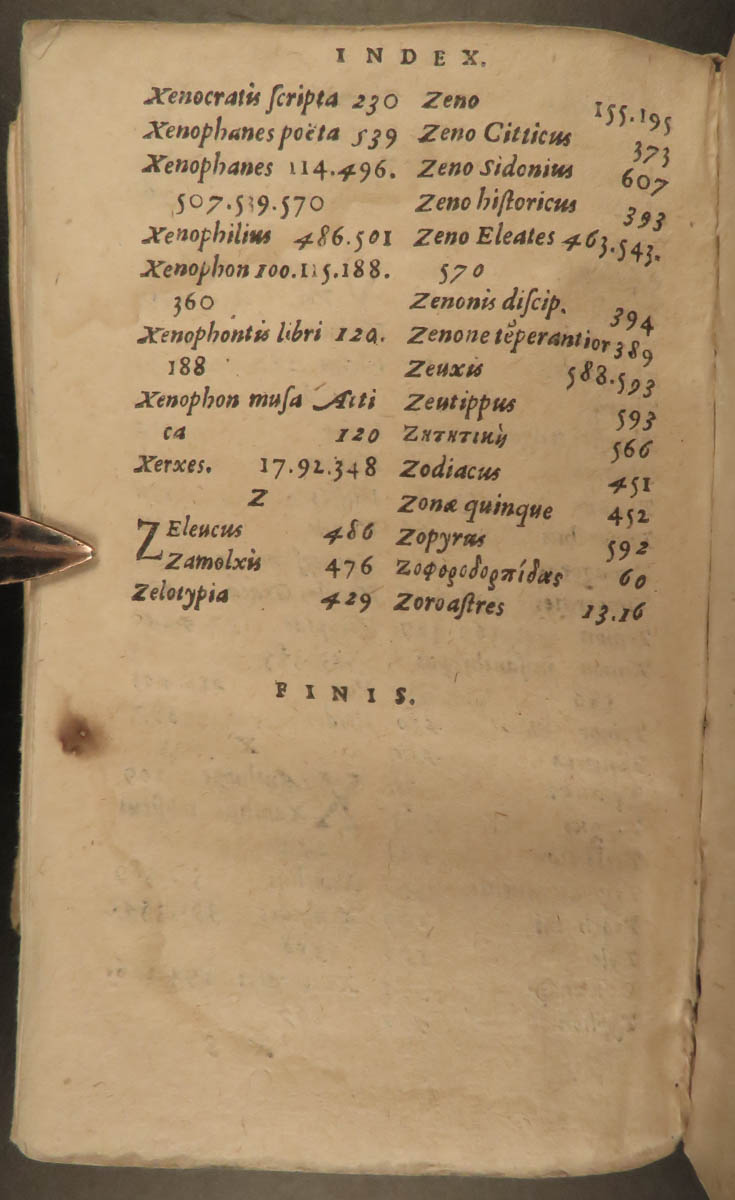 INDEX.
Xenocratis ſcripta 230
Xenophanes poëta 539
Xenophanes 114.496.
507.539.570
Xenophilius 486.501
Xenophon 100.115.188.
360
Xenophontis libri 120.
188
Xenophon muſa Atti
ca 120
Xerxes. 17.92.348
Z
ZEleucus 486
Zamolxis 476
Zelotypia 429
Zeno 155.195
Zeno Citticus 373
Zeno Sidonius 607
Zeno hiſtoricus 393
Zeno Eleates 463.543.
570
Zenonis diſcip. 394
Zenone tẽperantior 389
Zeuxis 588.593
Zeutippus 593
Ζητητικὴ 566
Zodiacus 451
Zonæ quinque 452
Zopyrus 592
Ζοφοροδορπίδας 60
Zoroaſtres 13.16
FINIS.